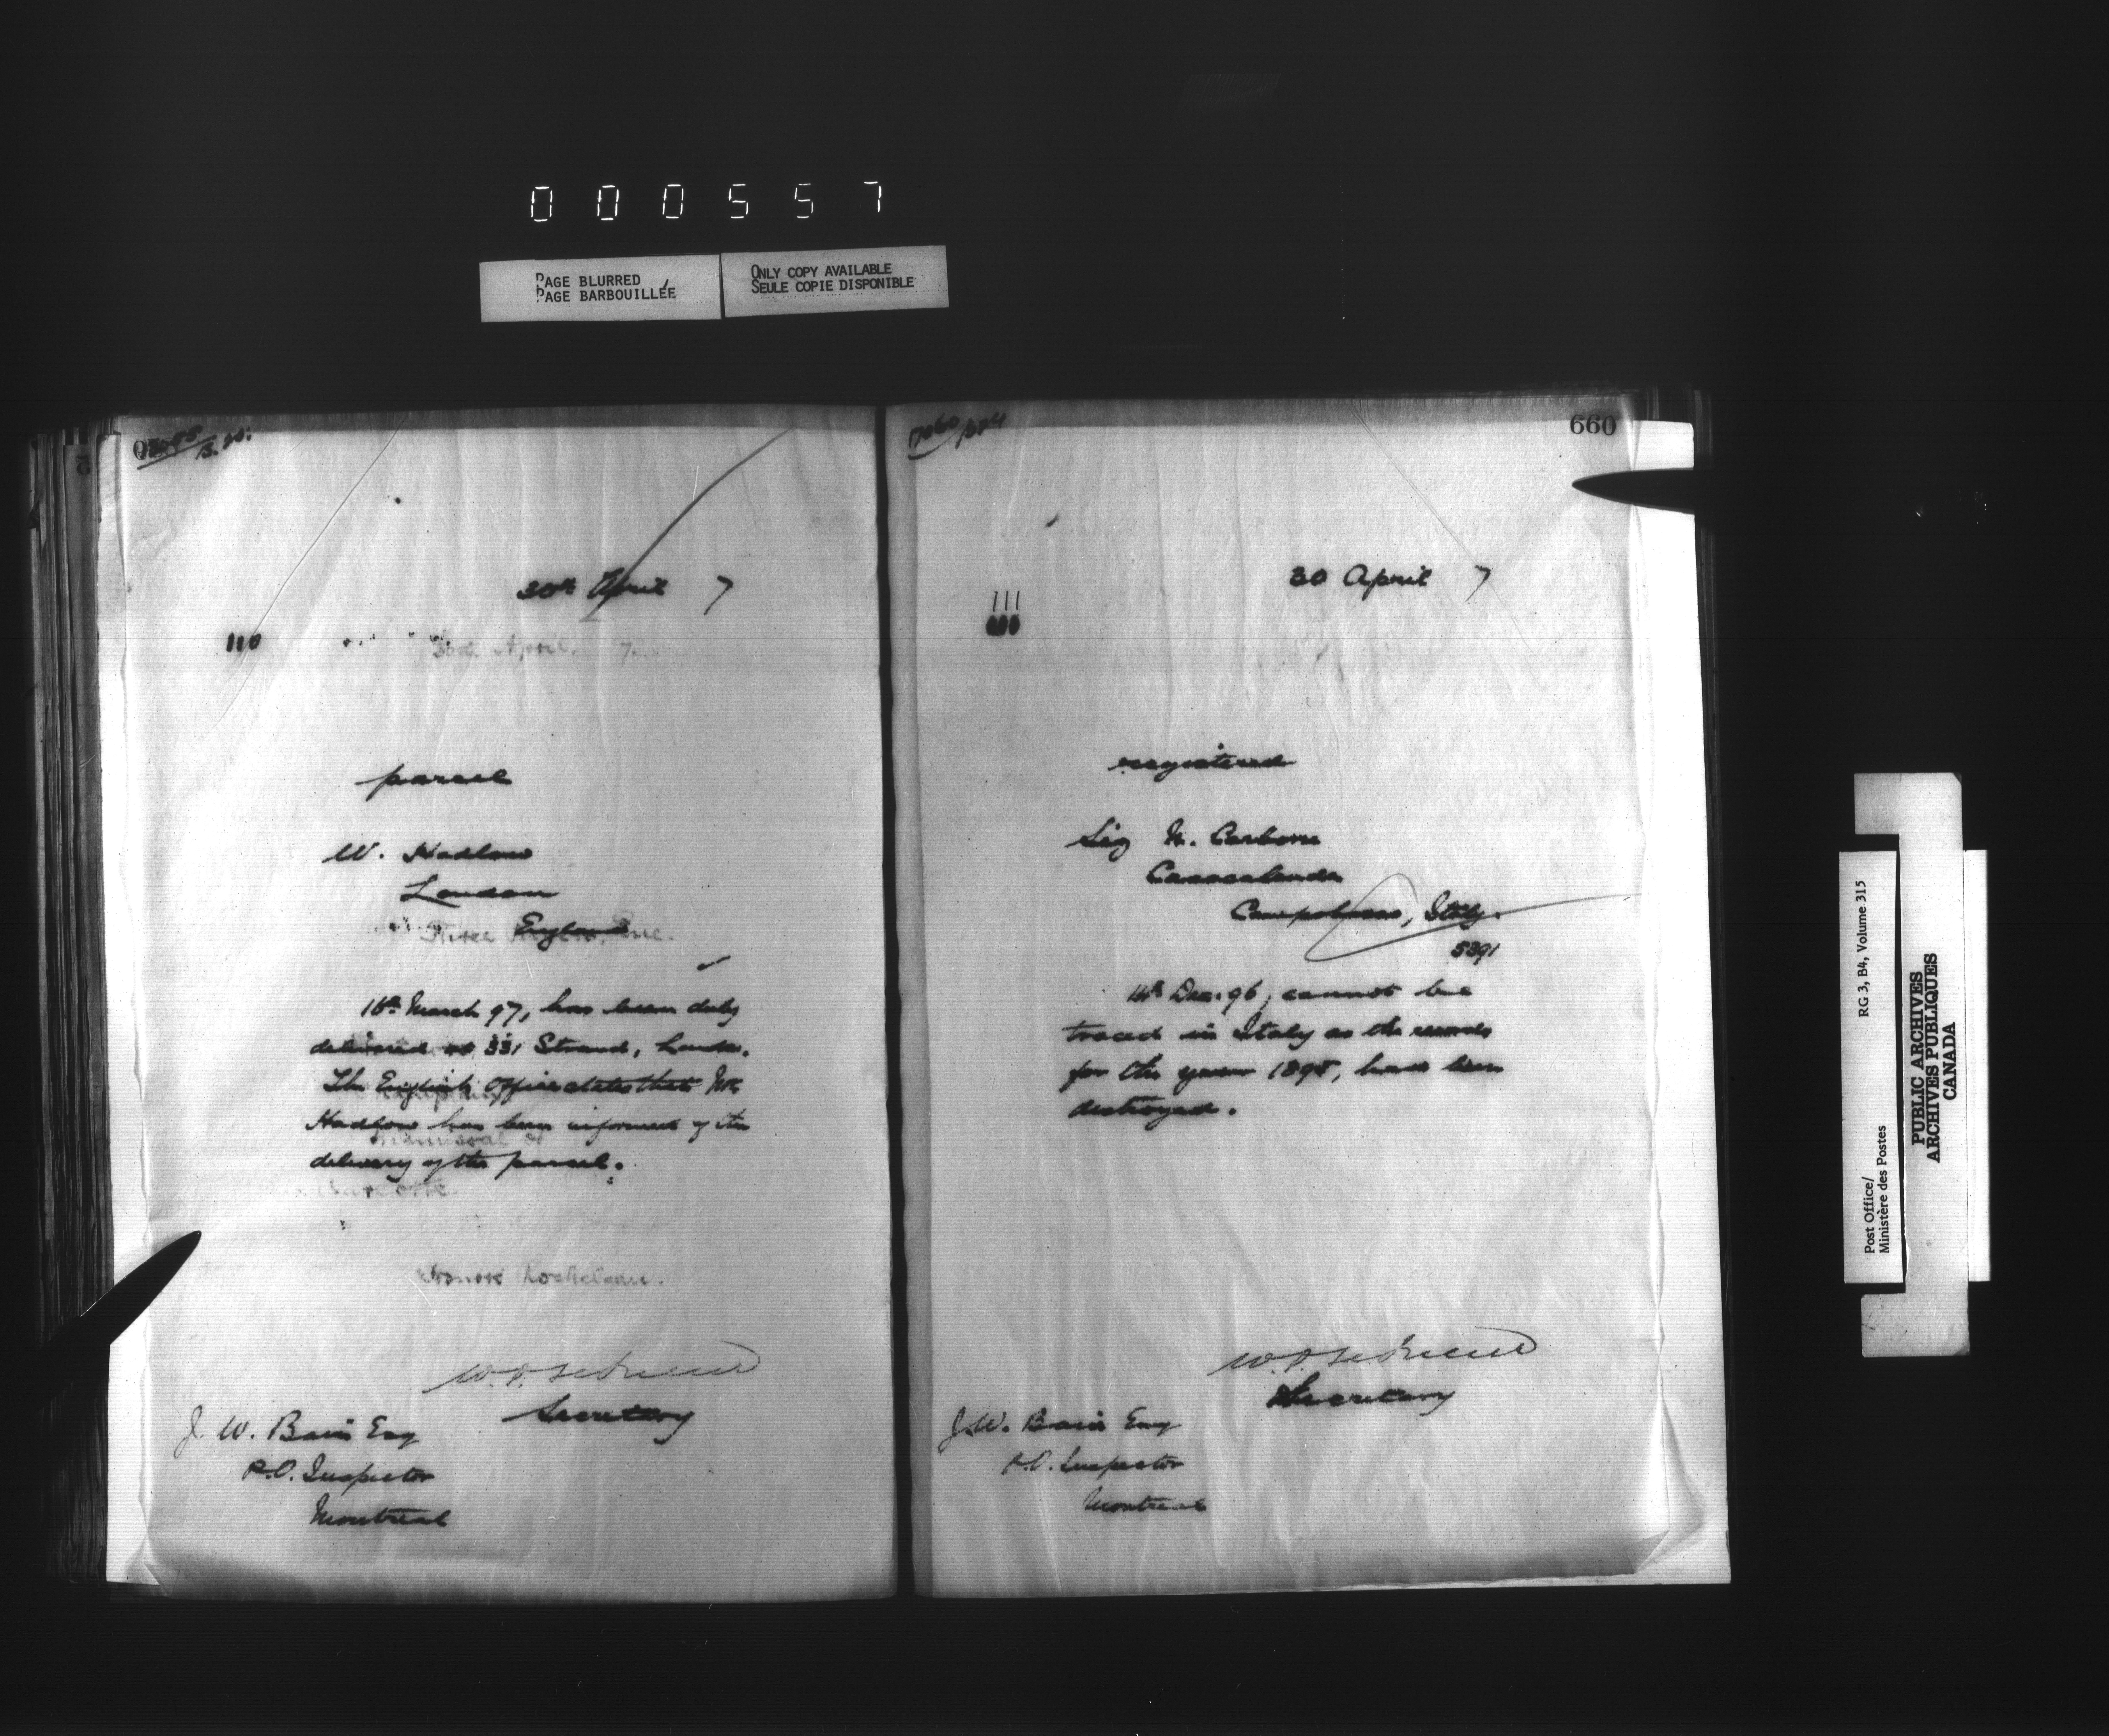 000557
PAGE BLURRED
PAGE BARBOUILLÉE
ONLY COPY AVAILABLE
SEULE COPIE DISPONIBLE
30th April 7
110
30th April. 7
parcel
W. Hadlow
London
England
Three Rivers, Que.
16th March 97, has been duly
delivered at 331 Strand, London.
The English Office states that Mr.
Hadlow has been informed of the
delivery of the parcel.
Honoré Rocheleau.
Secretary
J. W. Bain Esq
P.O. Inspector
Montreal
660
30 April 7
111
registered
Sig N. Carbone
Casacalenda
Campobasso, Italy.
5391
14th Dec. 96, cannot be
traced in Italy as the records
for the year 1895, have been
destroyed.
Secretary
J. W. Bain Esq
P.O. Inspector
Montreal
Post Office/
Ministère des Postes
RG 3, B4, Volume 315
PUBLIC ARCHIVES
ARCHIVES PUBLIQUES
CANADA